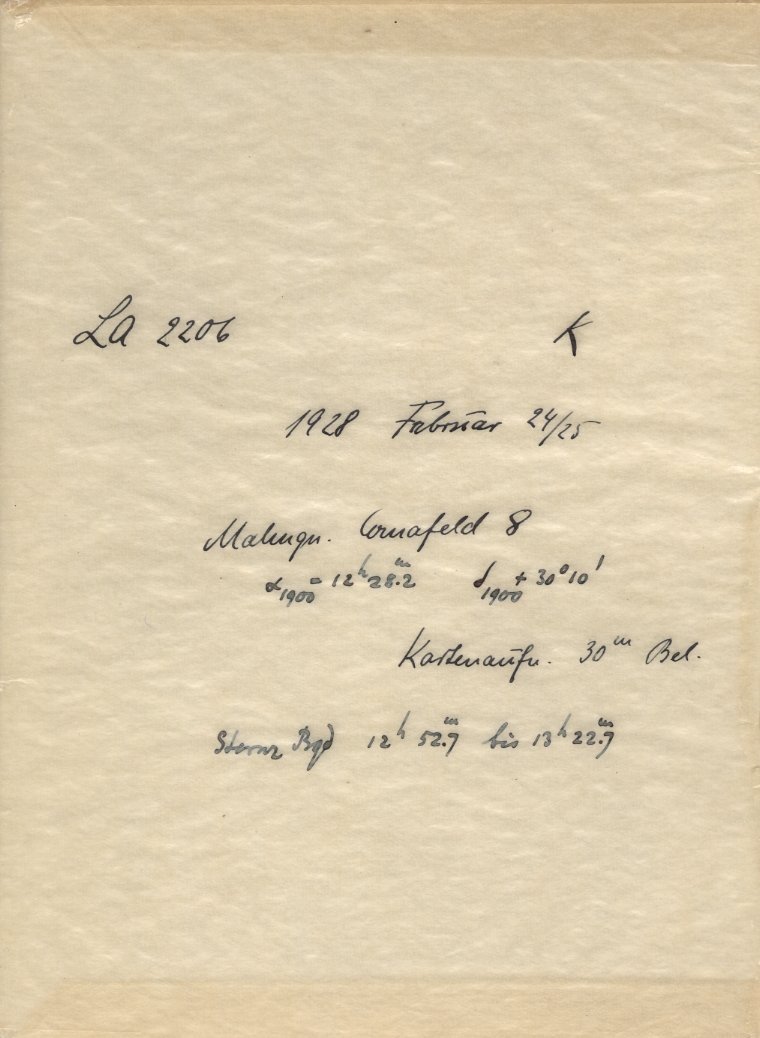 LA 2206 K
1928 Februar 24/25
Comafeld 8
α1900 = 12h 28.m2 δ1900 + 30° 10'
Kartenaufn. 30m Bel.
Sternz Bgd 12h 52.m7 bis 13h 22.m7